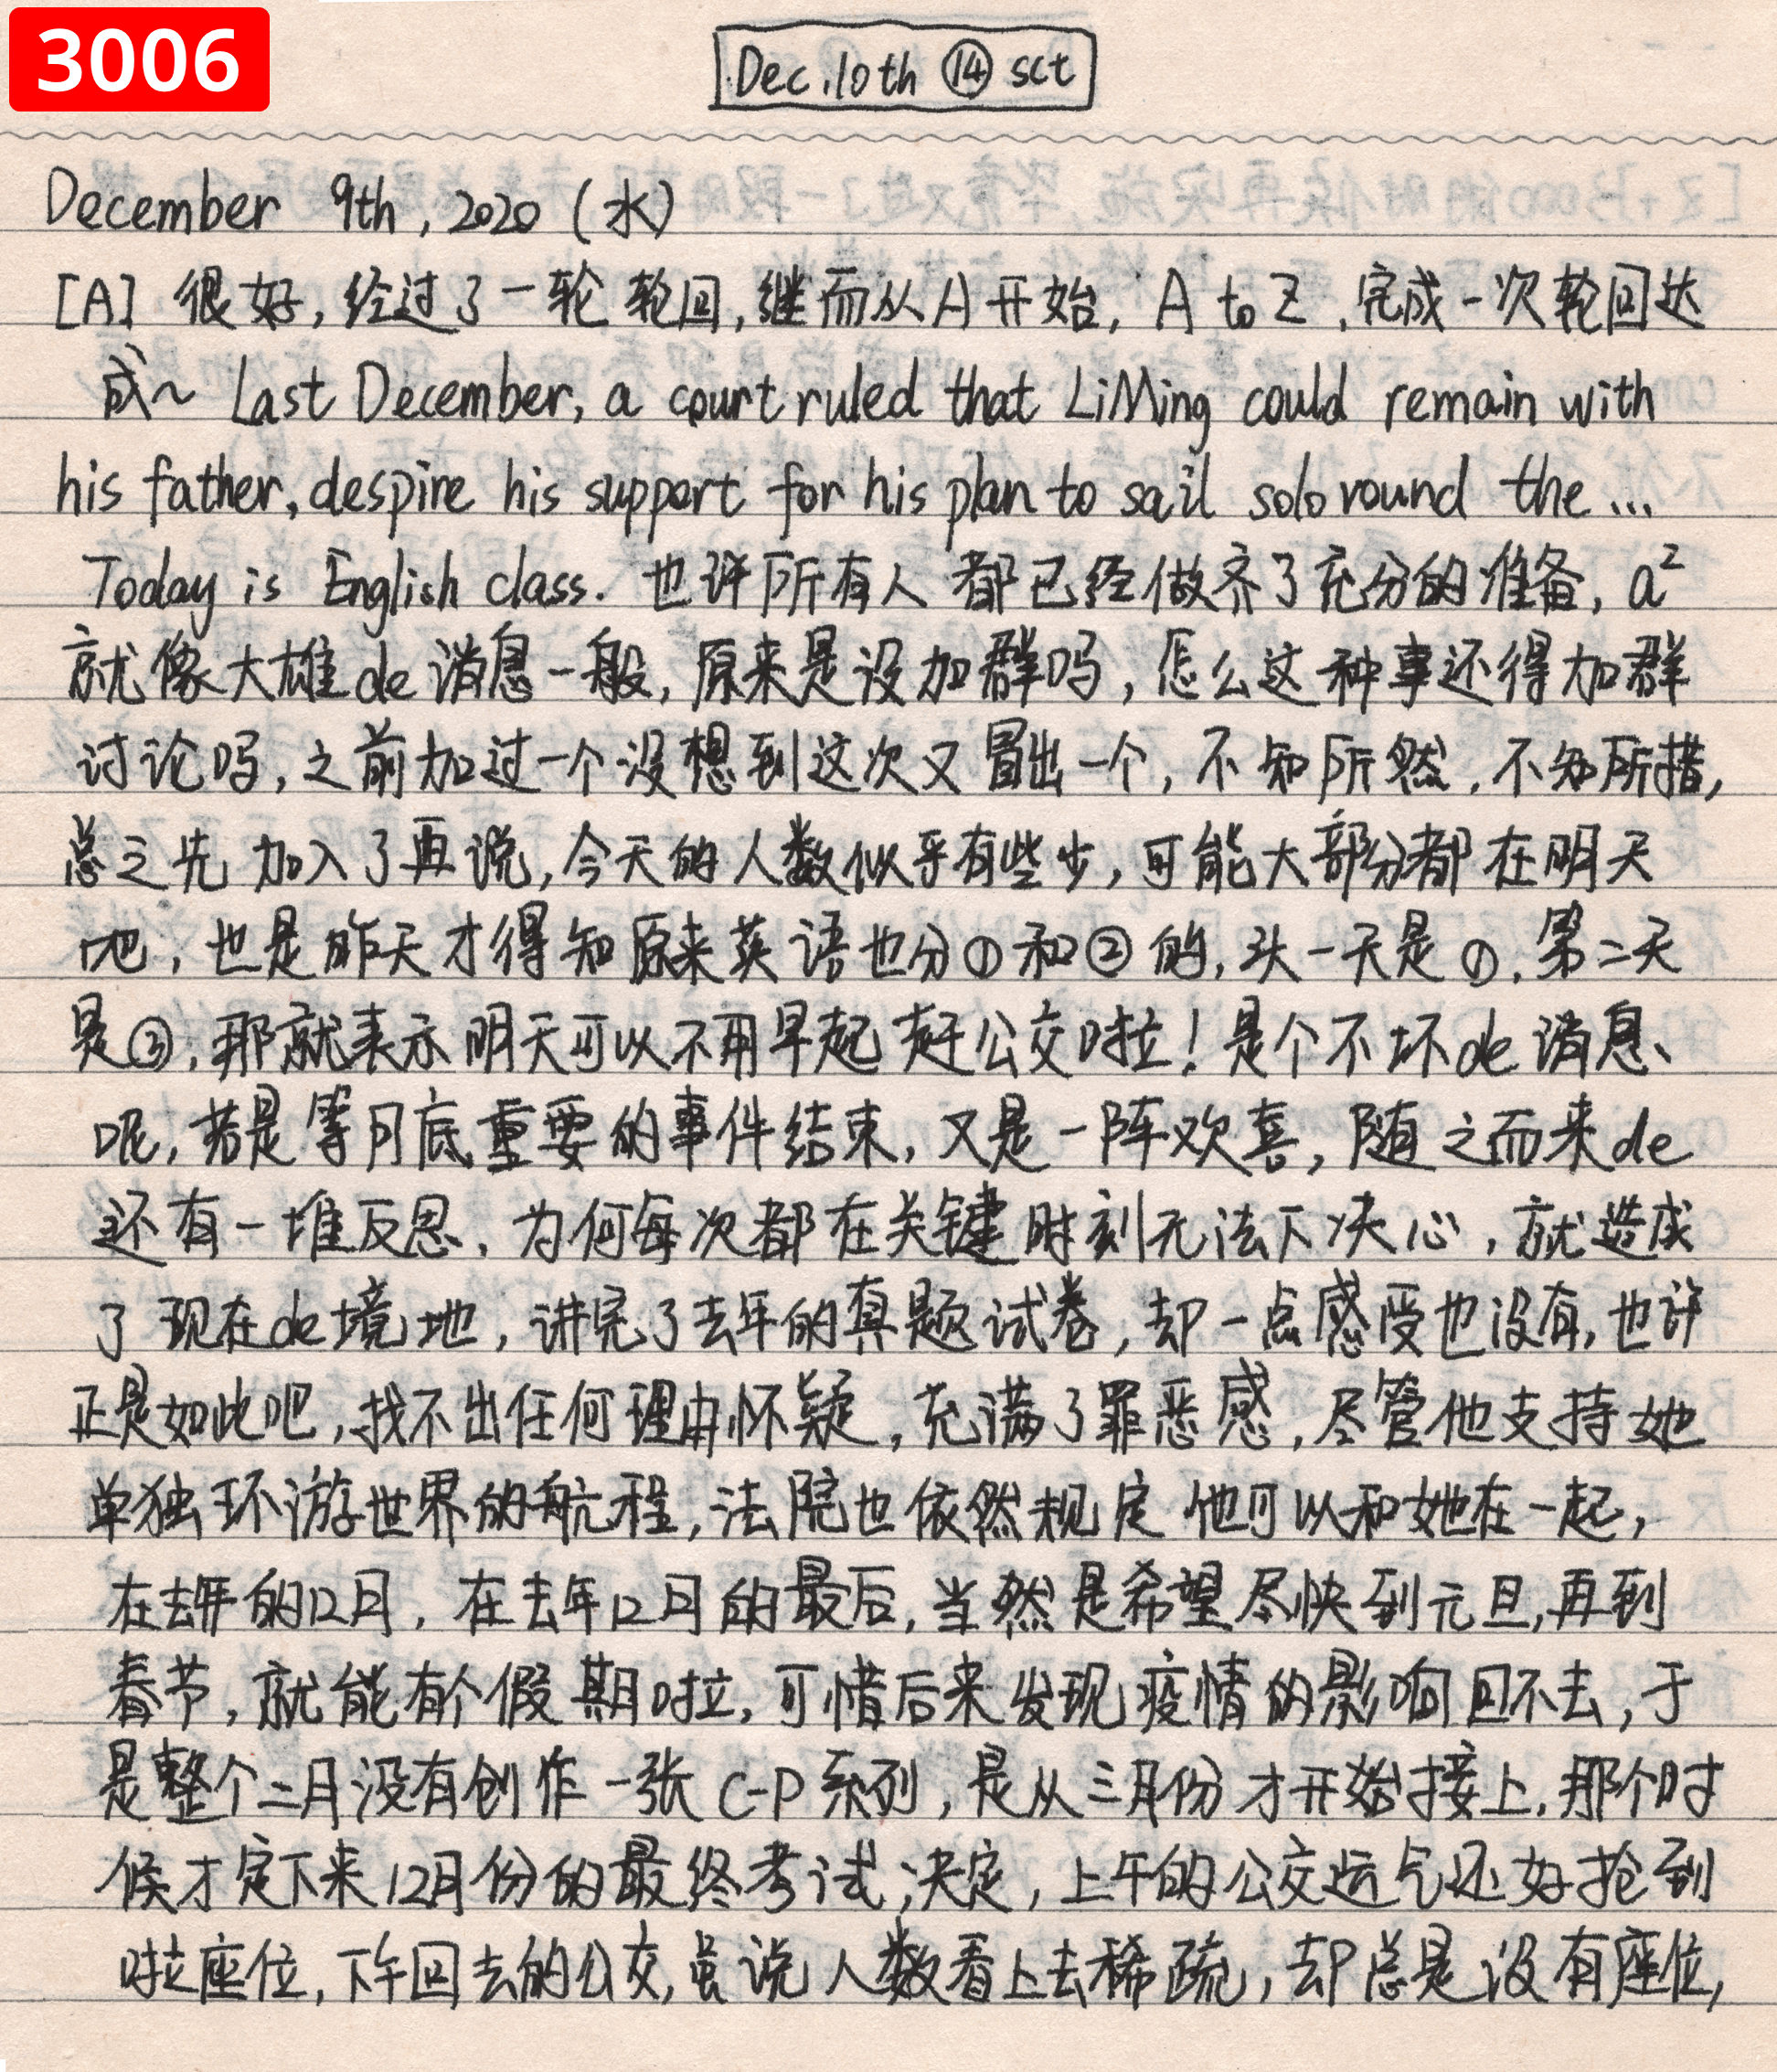 3006
Dec.10th ⑭ sct
December 9th, 2020 (水)
[A] 很好,经过了一轮轮回,继而从A开始, A to Z,完成一次轮回达
成~ Last December, a court ruled that LiMing could remain with
his father, despire his support for his plan to sail solo round the ...
Today is English class. 也许所有人都已经做齐了充分的准备, a²
就像大雄de消息一般,原来是没加群吗,怎么这种事还得加群
讨论吗,之前加过一个没想到这次又冒出一个,不知所然,不知所措,
总之先加入了再说,今天的人数似乎有些少,可能大部分都在明天
吧,也是昨天才得知原来英语也分①和②的,头一天是①,第二天
是②,那就表示明天可以不用早起赶公交啦!是个不坏de消息、
呢,若是等月底重要的事件结束,又是一阵欢喜,随之而来de
还有一堆反思、为何每次都在关键时刻无法下决心,就造成
了现在de境地,讲完了去年的真题试卷,却一点感受也没有,也许
正是如此吧,找不出任何理由怀疑,充满了罪恶感,尽管他支持她
单独环游世界的航程,法院也依然规定他可以和她在一起,
在去年的12月,在去年12月的最后,当然是希望尽快到元旦,再到
春节,就能有个假期啦,可惜后来发现疫情的影响回不去,于
是整个二月没有创作一张C-P系列,是从三月份才开始接上,那个时
候才定下来12月份的最终考试决定,上午的公交运气还好抢到
啦座位,下午回去的公交,虽说人数看上去稀疏,却总是没有座位,